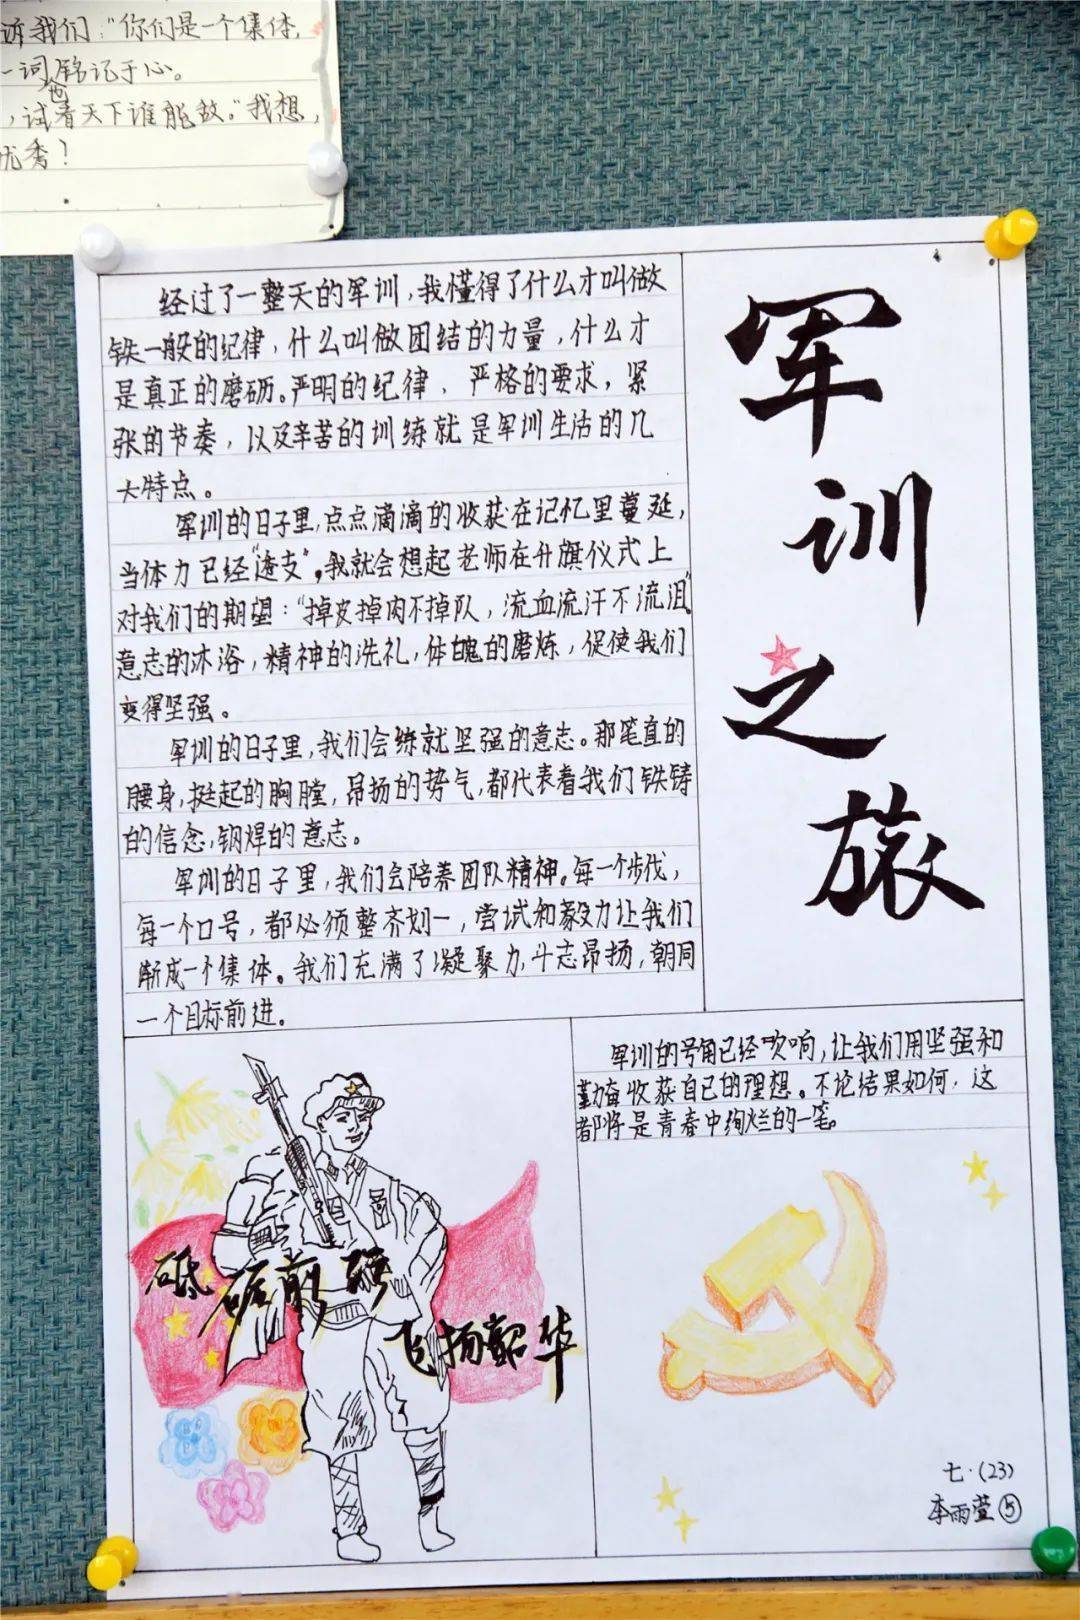 诉我们："你们是一个集体,
一词铭记于心。
也
,试看天下谁能敌。"我想,
优秀!
经过了一整天的军训,我懂得了什么才叫做
铁一般的纪律,什么叫做团结的力量,什么才
是真正的磨砺。严明的纪律、严格的要求,紧
张的节奏,以及辛苦的训练就是军训生活的几
大特点。
军训的日子里,点点滴滴的收获在记忆里蔓延,
当体力已经"透支",我就会想起老师在升旗仪式上
对我们的期望:"掉皮掉肉不掉队,流血流汗不流泪"
意志的沐浴,精神的洗礼,体魄的磨炼,促使我们
变得坚强。
军训的日子里,我们会练就坚强的意志。那笔直的
腰身,挺起的胸膛,昂扬的势气,都代表着我们铁铸
的信念,钢焊的意志。
军训的日子里,我们会陪养团队精神。每一个步伐,
每一个口号,都必须整齐划一,尝试和毅力让我们
渐成一个集体。我们充满了凝聚力,斗志昂扬,朝同
一个目标前进。
军训之旅
军训的号角已经吹响,让我们用坚强和
勤奋收获自己的理想。不论结果如何,这
都将是青春中绚烂的一笔。
砥砺前强
飞扬韶华
七·(23)
李雨萱⑤